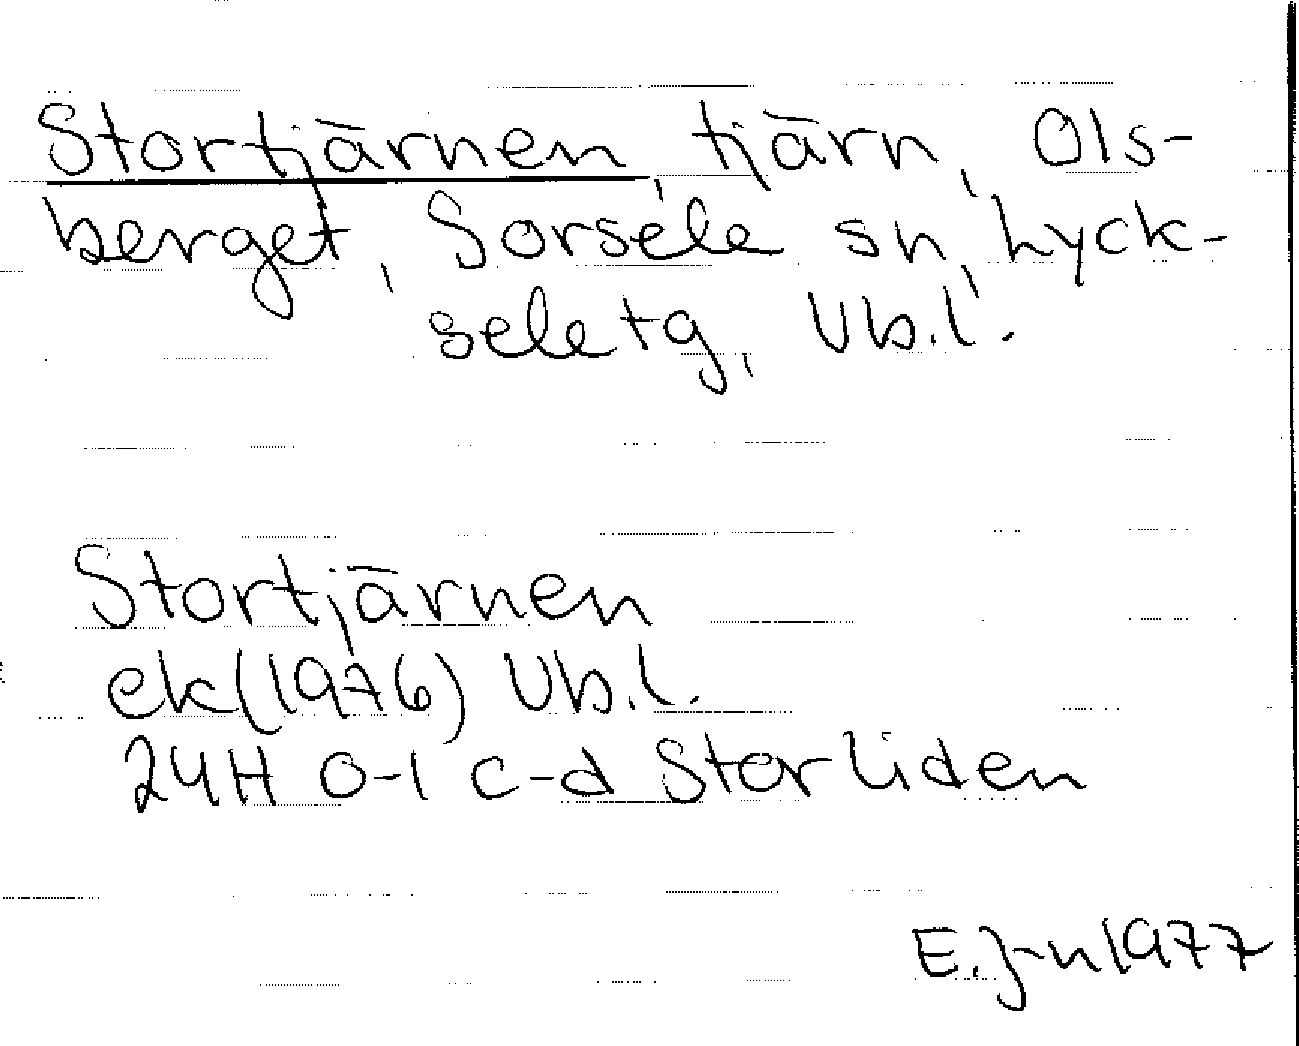 Stortjärnen, tjärn, Ols-
berget, Sorsele sn, Lyck-
sele tg, Vb.l.
Stortjärnen
ek(1976) Vb.l.
24H 0-1 c-d Storliden
E.J-n 1977